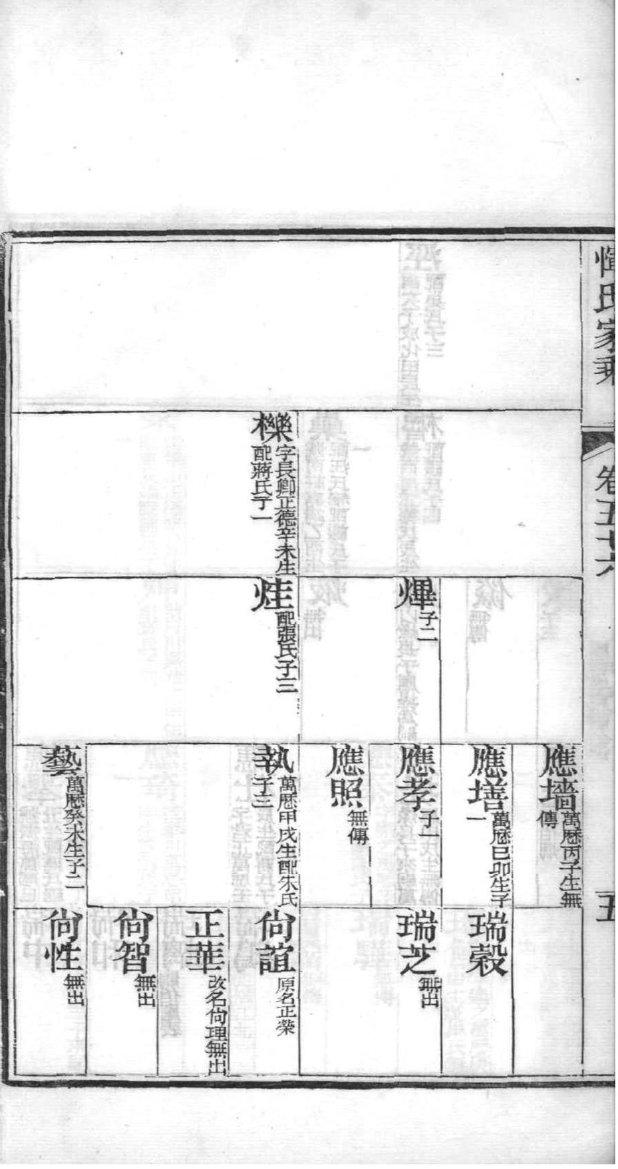 惲氏家乘
卷五十六
五
櫟
字長卿正德辛未生
配蔣氏子一
燁
子二
炷
配張氏子三
應墻
萬厯丙子生無
傳
應墡
萬厯己卯生子
一
應孝
子一
應照
無傳
執
萬厯甲戌生配朱氏
子三
藝
萬厯癸未生子二
瑞穀
瑞芝
無出
尙誼
原名正榮
正華
改名尙理無出
尙智
無出
尙性
無出